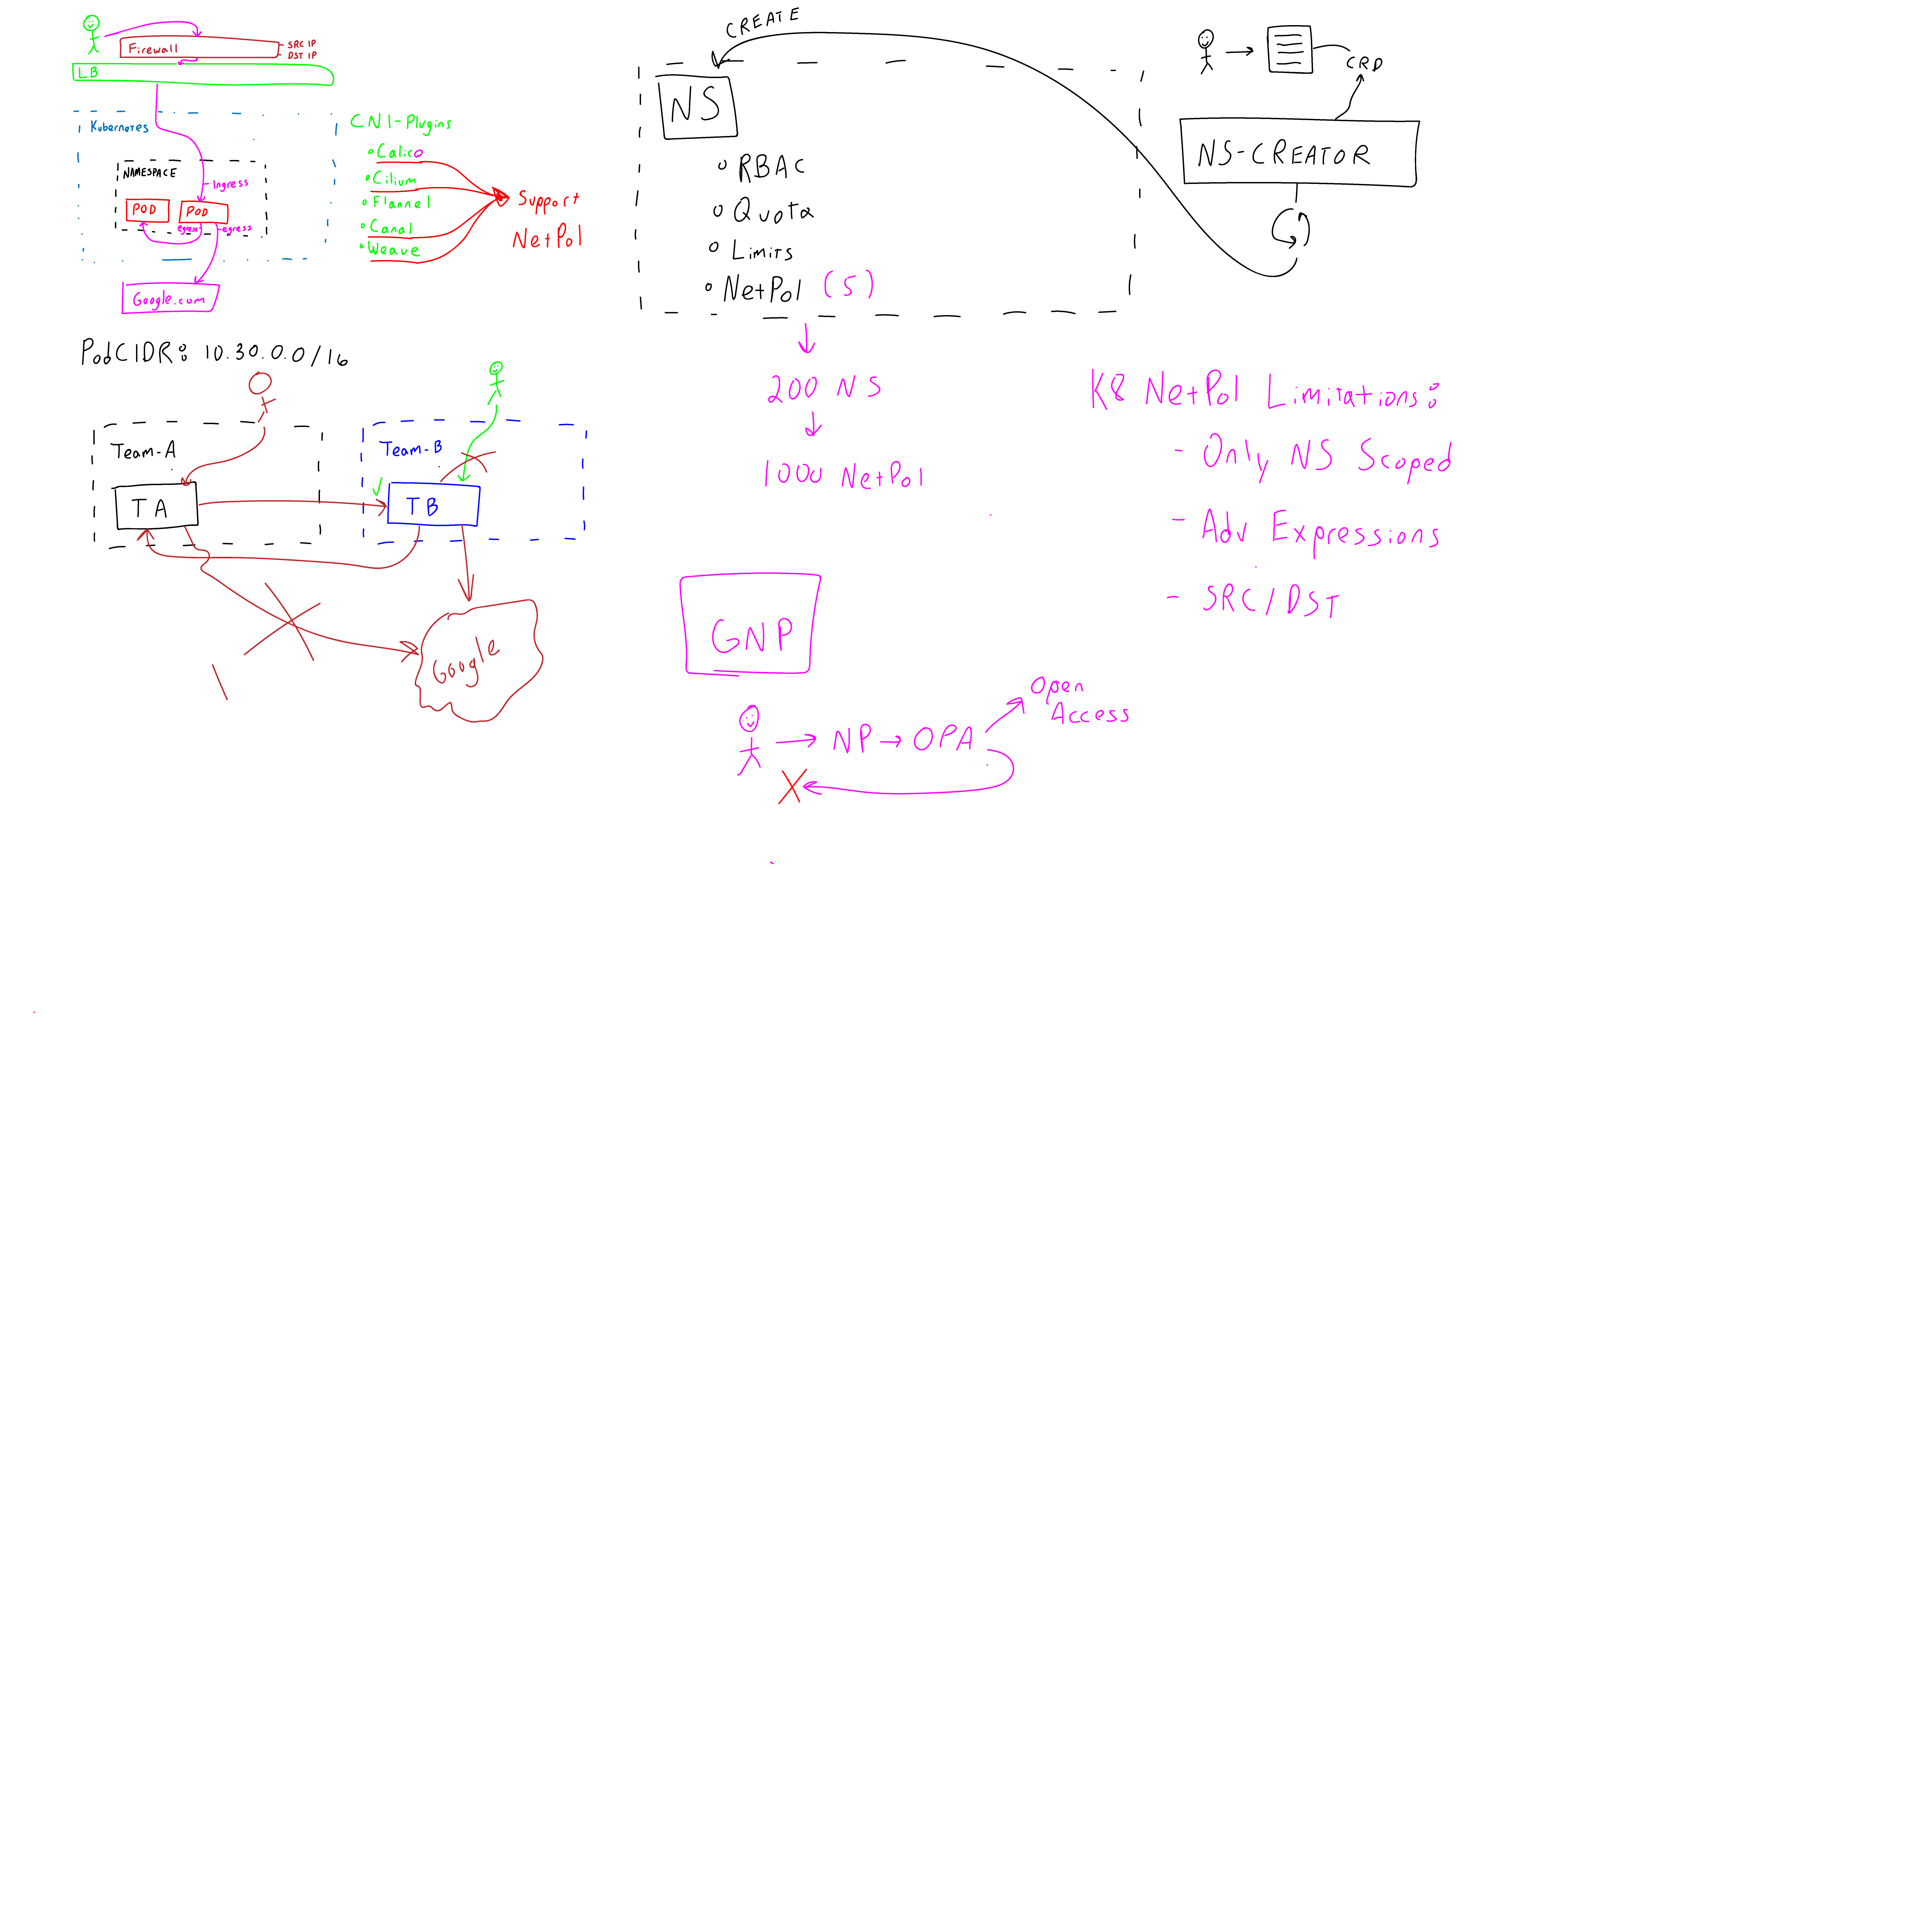 Firewall
SRC IP
DST IP
LB
Kubernetes
NAMESPACE
Ingress
POD
POD
egress
egress
Google.com
CNI-Plugins
Calico
Cilium
Flannel
Canal
Weave
Support
NetPol
PodCIDR: 10.30.0.0/16
Team-A
TA
Team-B
TB
Google
CREATE
NS
RBAC
Quota
Limits
NetPol (5)
200 NS
1000 NetPol
GNP
NP → OPA
Open
Access
CRD
NS-CREATOR
K8 NetPol Limitations:
- Only NS Scoped
- Adv Expressions
- SRC/DST